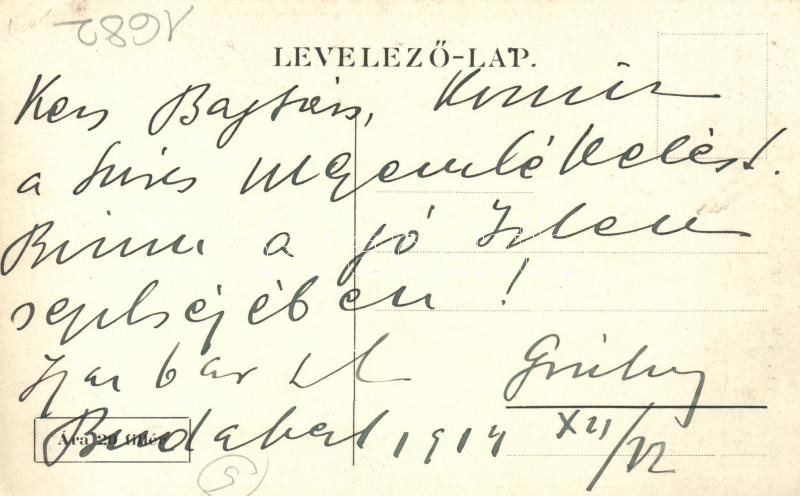 1682
LEVELEZŐ-LAP.
Kedves Bajtárs, Köszönöm
a szíves megemlékelést.
Bizni a jó Isten
segitségében!
Igaz barát
Budabest 1914 XII/22
Ára 20 fillér
5